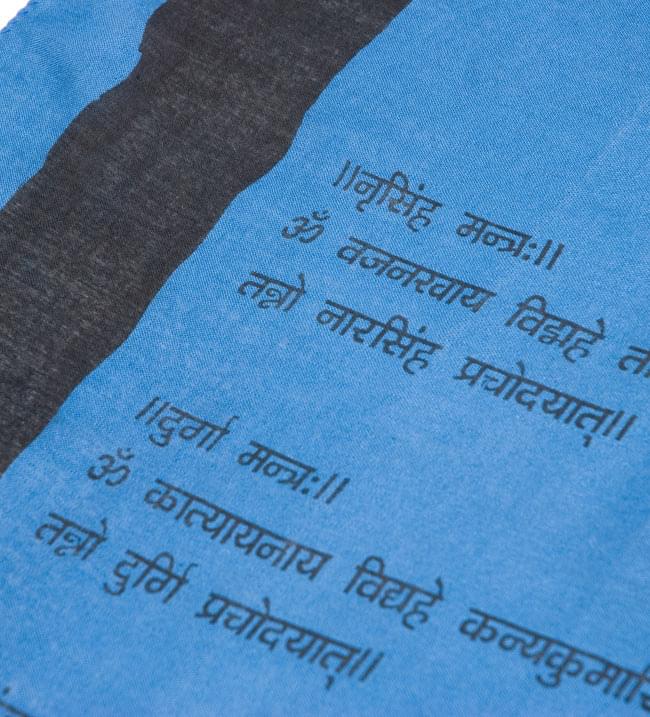 ॥नृसिंह मन्त्रः॥
ॐ वजनरवाय विद्महे
तन्नो नारसिंह प्रचोदयात्॥
॥दुर्गा मन्त्रः॥
ॐ कात्यायनाय विद्यहे कन्यकुमारि
तन्नो दुर्गि प्रचोदयात्॥